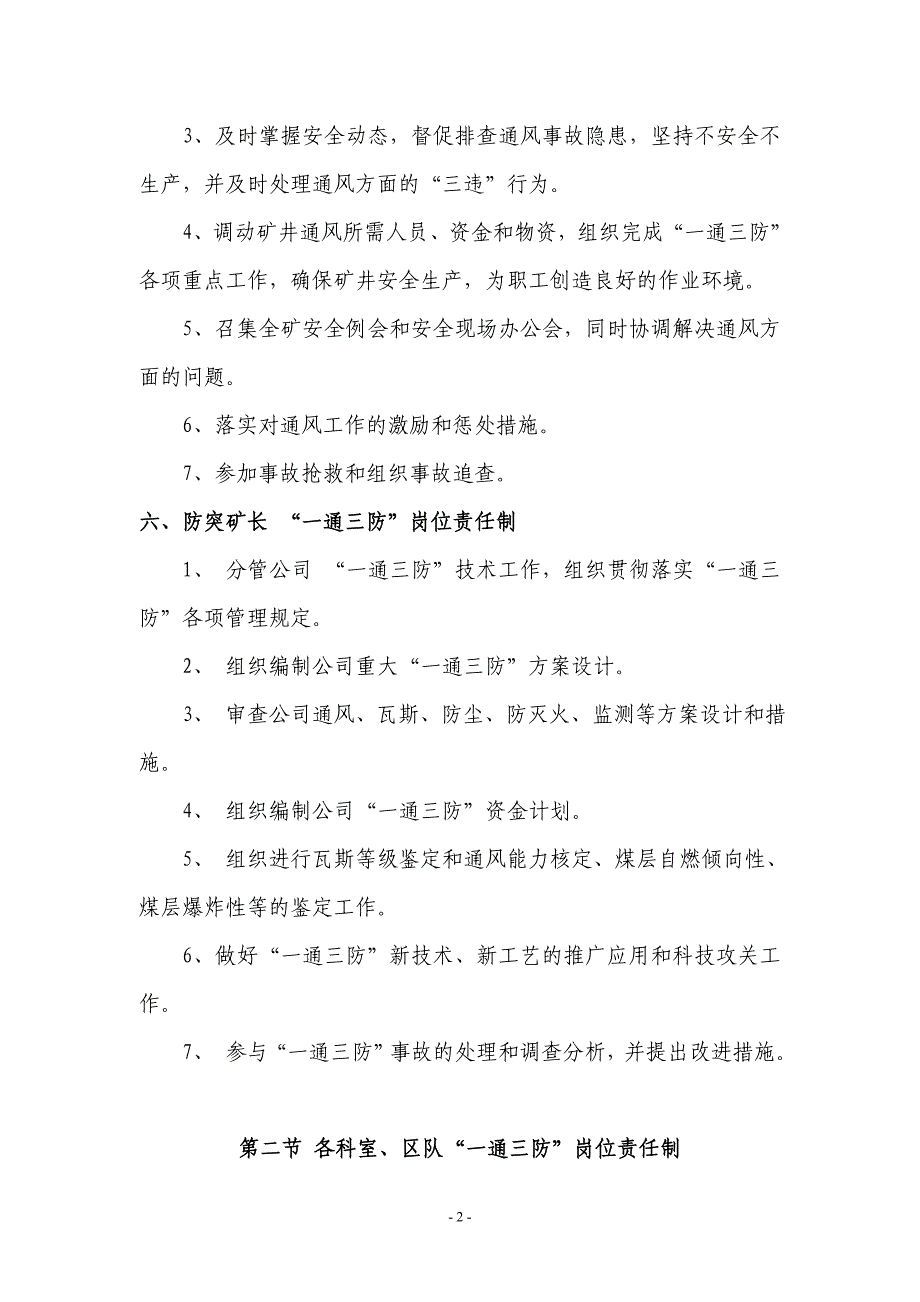 3、及时掌握安全动态，督促排查通风事故隐患，坚持不安全不
生产，并及时处理通风方面的“三违”行为。
4、调动矿井通风所需人员、资金和物资，组织完成“一通三防”
各项重点工作，确保矿井安全生产，为职工创造良好的作业环境。
5、召集全矿安全例会和安全现场办公会，同时协调解决通风方
面的问题。
6、落实对通风工作的激励和惩处措施。
7、参加事故抢救和组织事故追查。
六、防突矿长 “一通三防”岗位责任制
1、 分管公司 “一通三防”技术工作，组织贯彻落实“一通三
防”各项管理规定。
2、 组织编制公司重大“一通三防”方案设计。
3、 审查公司通风、瓦斯、防尘、防灭火、监测等方案设计和措
施。
4、 组织编制公司“一通三防”资金计划。
5、 组织进行瓦斯等级鉴定和通风能力核定、煤层自燃倾向性、
煤层爆炸性等的鉴定工作。
6、做好“一通三防”新技术、新工艺的推广应用和科技攻关工
作。
7、 参与“一通三防”事故的处理和调查分析，并提出改进措施。
第二节 各科室、区队“一通三防”岗位责任制
- 2 -